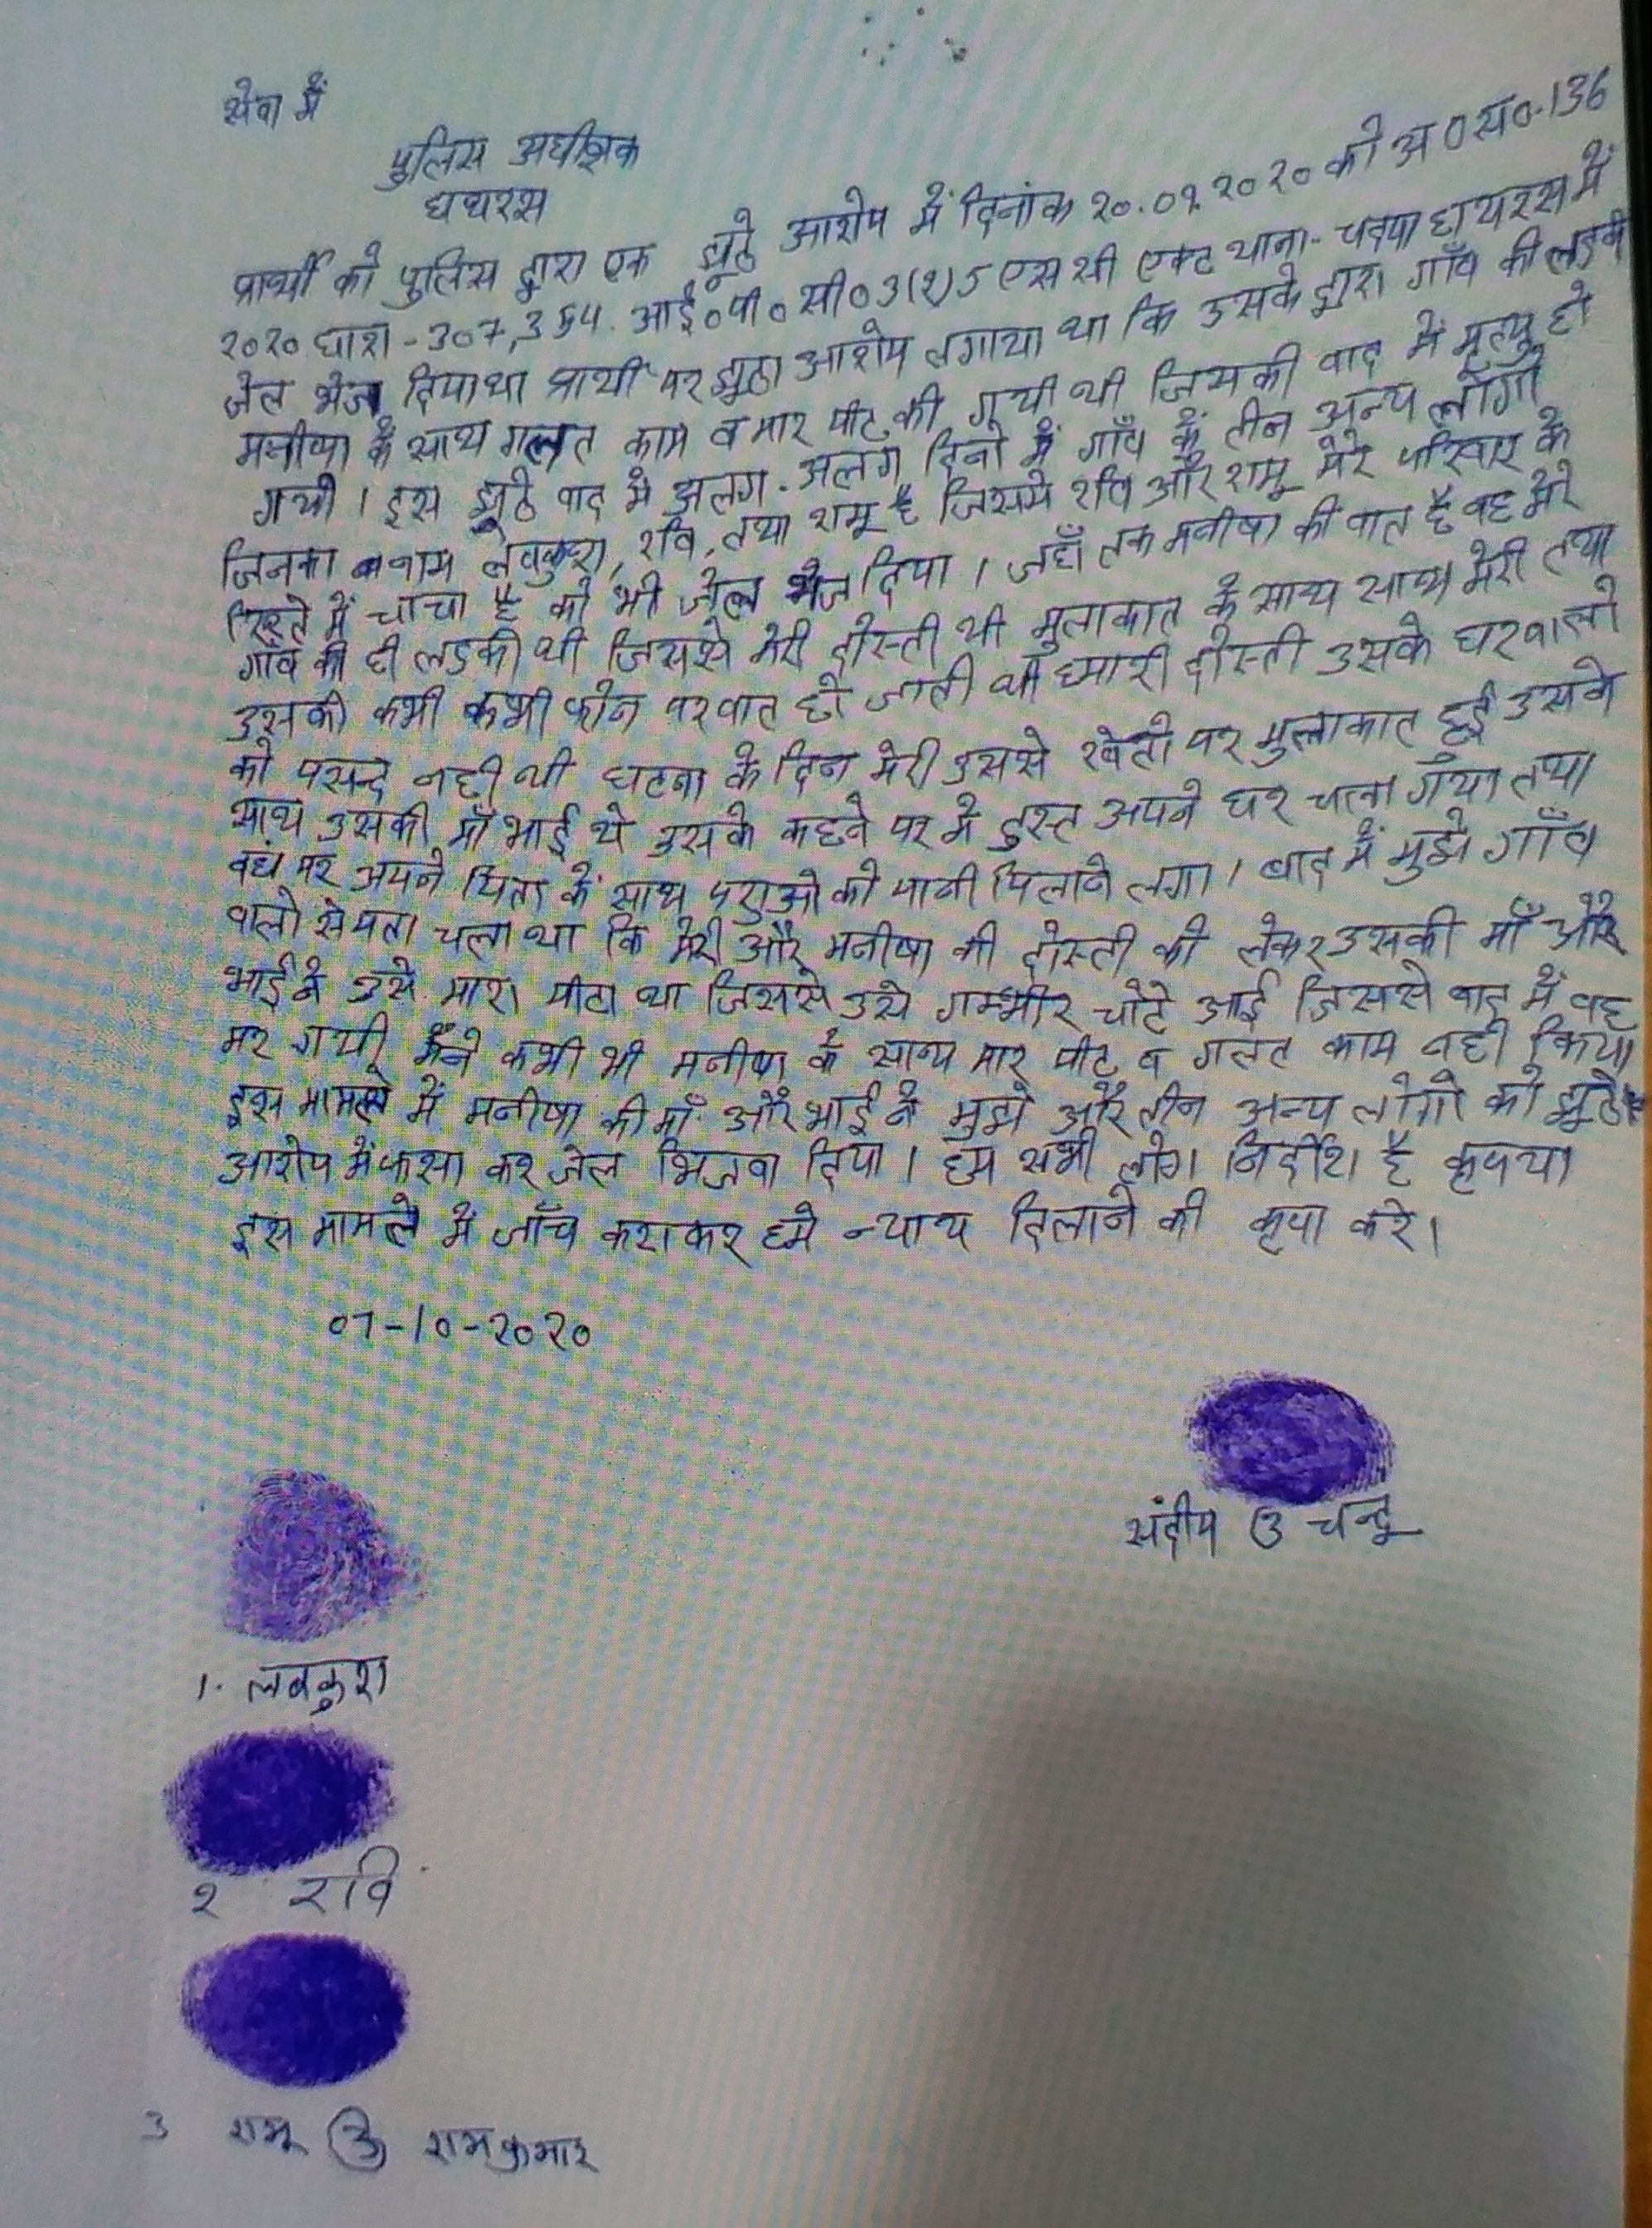 सेवा में
पुलिस अधीक्षक
हाथरस
प्रार्थी को पुलिस द्वारा एक झूठे आरोप में दिनांक २०.०९.२०२० को अ०स०.136
२०२० धारा-307,354. आई०पी०सी० 3(२)5 एस सी एक्ट थाना- चदपा हाथरस में
जेल भेज दिया था प्रार्थी पर झूठा आरोप लगाया था कि उसके द्वारा गाँव की लड़की
मनीषा के साथ गलत काम व मार पीट की गयी थी जिसकी बाद में मृत्यु हो
गयी । इस झूठे वाद में अलग-अलग दिनो में गाँव के तीन अन्य लोगो
जिनका नाम लवकुश, रवि, तथा रामू है जिसमे रवि और रामू मेरे परिवार के
रिश्ते में चाचा है को भी जेल भेज दिया । जहाँ तक मनीषा की बात है वह मेरे
गाँव की ही लडकी थी जिससे मेरी दोस्ती थी मुलाकात के साथ साथ मेरी तथा
उसकी कभी कभी फोन पर बात हो जाती थी हमारी दोस्ती उसके घरवालो
को पसन्द नही थी घटना के दिन मेरी उससे खेतो पर मुलाकात हुई उसके
साथ उसकी माँ भाई थे उसके कहने पर में तुरन्त अपने घर चला गया तथा
वहा पर अपने पिता के साथ पशुओ को पानी पिलाने लगा । बाद में मुझे गाँव
वालो से पता चला था कि मेरी और मनीषा की दोस्ती को लेकर उसकी माँ और
भाई ने उसे मारा पीटा था जिससे उसे गम्भीर चोटे आई जिससे बाद में वह
मर गयी, मैने कभी भी मनीषा के साथ मार पीट व गलत काम नही किया
इस मामले में मनीषा की माँ और भाई ने मुझे और तीन अन्य लोगो को झूठे
आरोप में फसा कर जेल भिजवा दिया । हम सभी लोग निर्दोश है कृपया
इस मामले में जाँच कराकर हमे न्याय दिलाने की कृपा करे ।
०7-10-२०२०
संदीप उ चन्दू
1. लवकुश
२ रवि
3 रामू उ रामकुमार